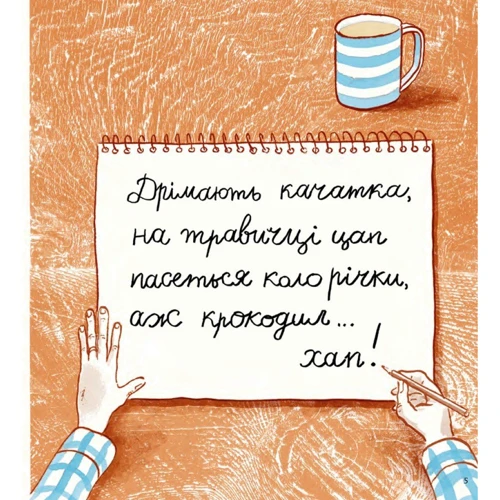 Дрімають качатка,
на травичці цап
пасеться коло річки,
аж крокодил...
хап!
5